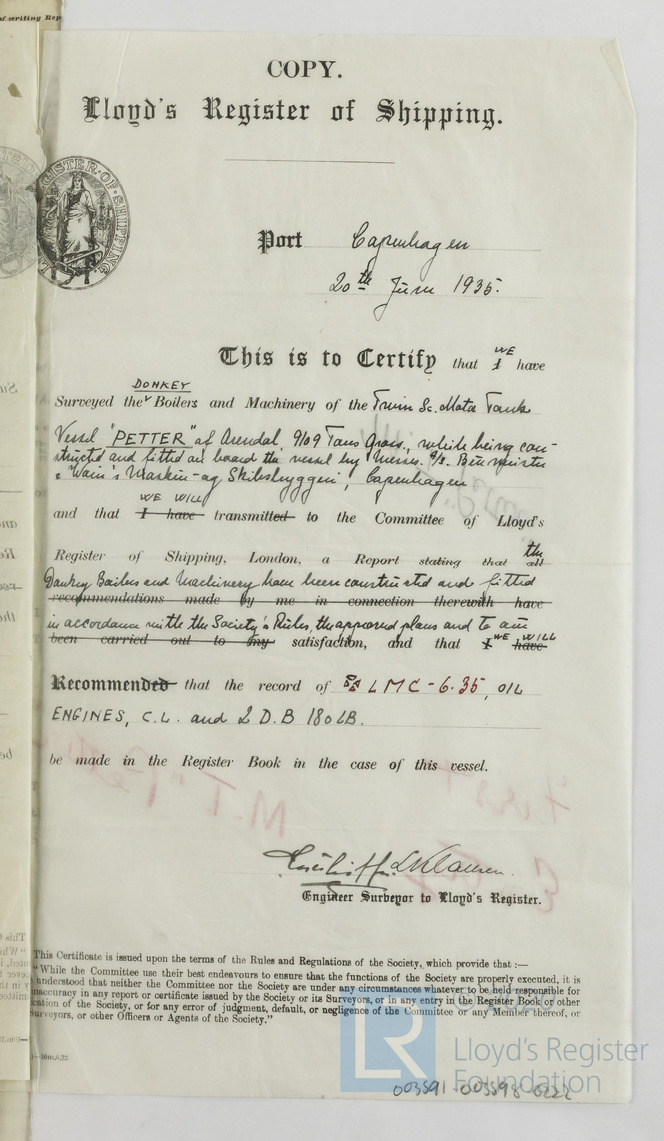 of writing Rep
COPY.
Lloyd's Register of Shipping.
REGISTER·OF·SHIPPING
Port Copenhagen
20th June 1935.
This is to Certify that I WE have
Surveyed the DONKEY Boilers and Machinery of the Twin Sc. Motor Tank
Vessel "PETTER" of Arendal 9109 Tons Gross, while being con-
structed and fitted on board the vessel by Messrs. A/S. Burmeister
& Wain's Maskin- og Skibsbyggeri, Copenhagen
WE WILL
and that I have transmitted to the Committee of Lloyd's
Register of Shipping, London, a Report stating that all the
Donkey Boilers and Machinery have been constructed and fitted
recommendations made by me in connection therewith have
in accordance with the Society's Rules, the approved plans and to our
been carried out to my satisfaction, and that I WE have WILL
Recommended that the record of LMC - 6.35, OIL
ENGINES, C.L. and 2 D.B 180 LB.
be made in the Register Book in the case of this vessel.
M.T "Petter"
First
Entry
Engineer Surveyor to Lloyd's Register.
This Certificate is issued upon the terms of the Rules and Regulations of the Society, which provide that :—
"While the Committee use their best endeavours to ensure that the functions of the Society are properly executed, it is
understood that neither the Committee nor the Society are under any circumstances whatever to be held responsible for
inaccuracy in any report or certificate issued by the Society or its Surveyors, or in any entry in the Register Book or other
cation of the Society, or for any error of judgment, default, or negligence of the Committee or any Member thereof, or
urveyors, or other Officers or Agents of the Society."
—10m,6,32.
LR
Lloyd's Register
Foundation
003891-003898-0222